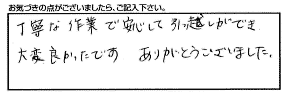 お気づきの点がございましたら、ご記入下さい。
丁寧な作業で安心して引っ越しができ
大変良かったです ありがとうございました。